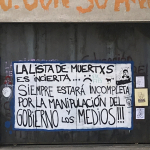 LA LISTA DE MUERTXS
ES INCIERTA...
SIEMPRE ESTARÁ INCOMPLETA
POR LA MANIPULACIÓN DEL
GOBIERNO Y LOS MEDIOS!!!